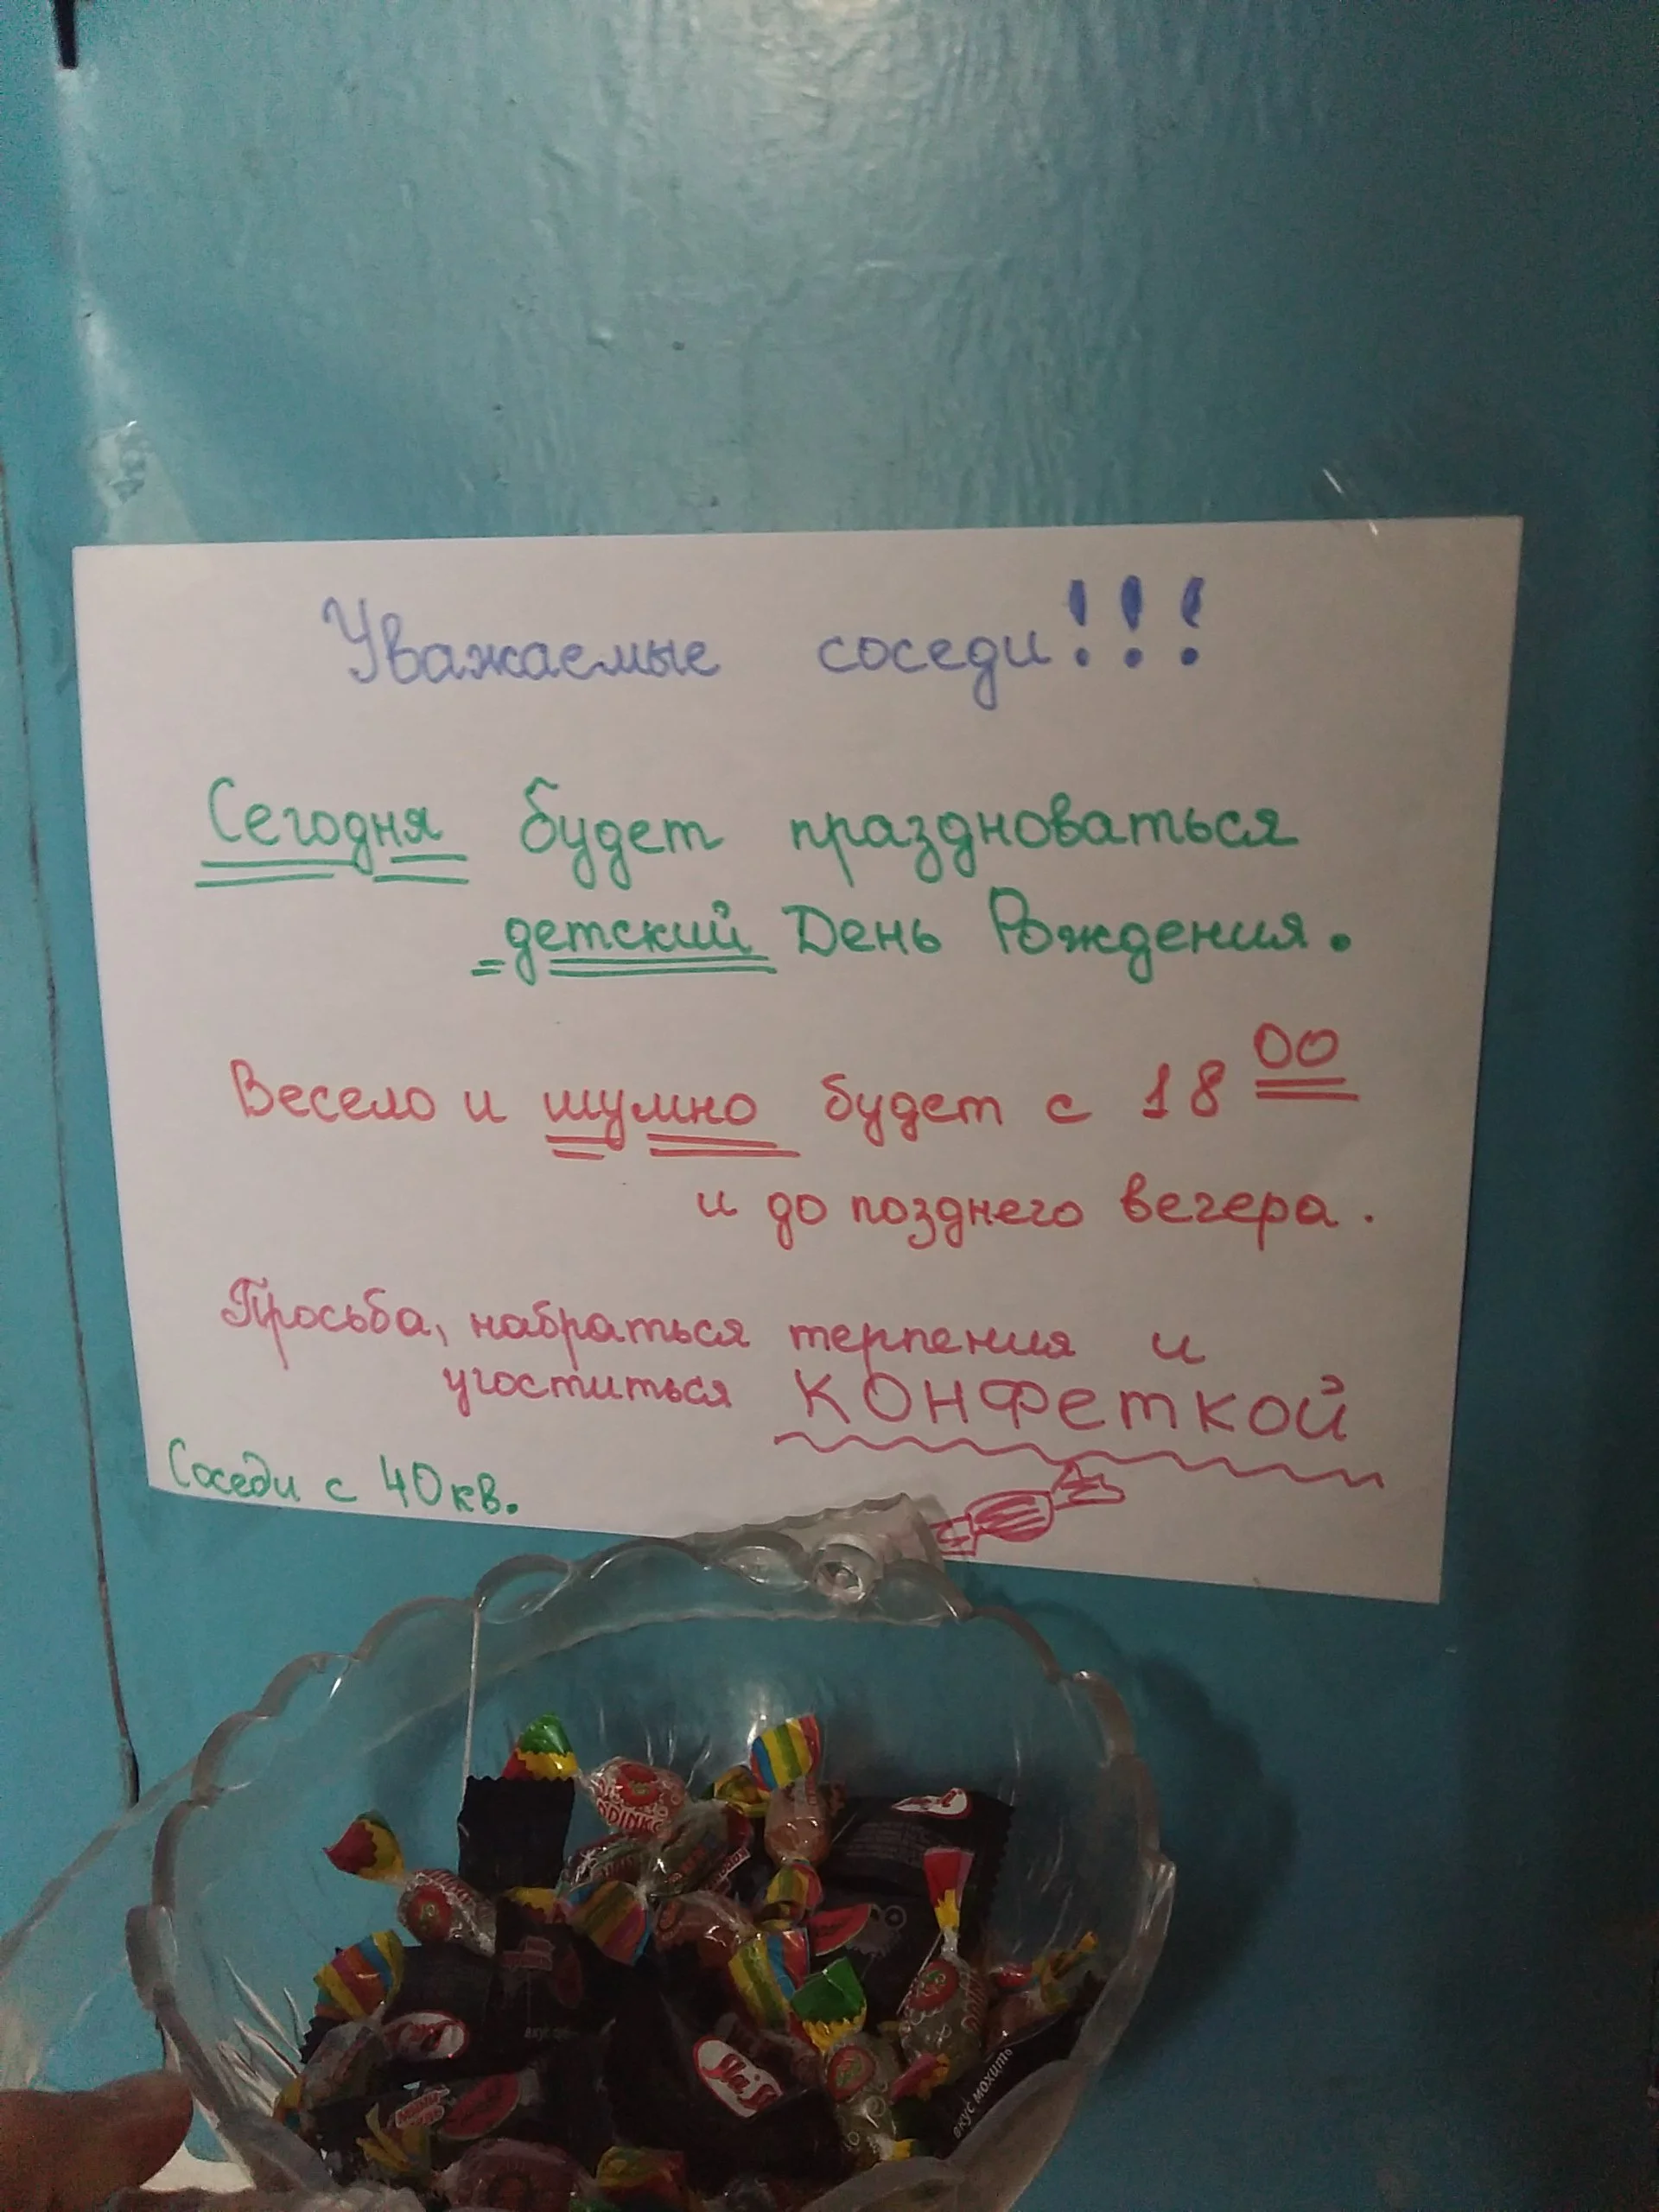 Уважаемые соседи!!!
Сегодня будет праздноваться
детский День Рождения.
Весело и шумно будет с 18 00
и до позднего вечера.
Просьба, набраться терпения и
угоститься КОНФеткой
Соседи с 40 кв.
вкус мохито